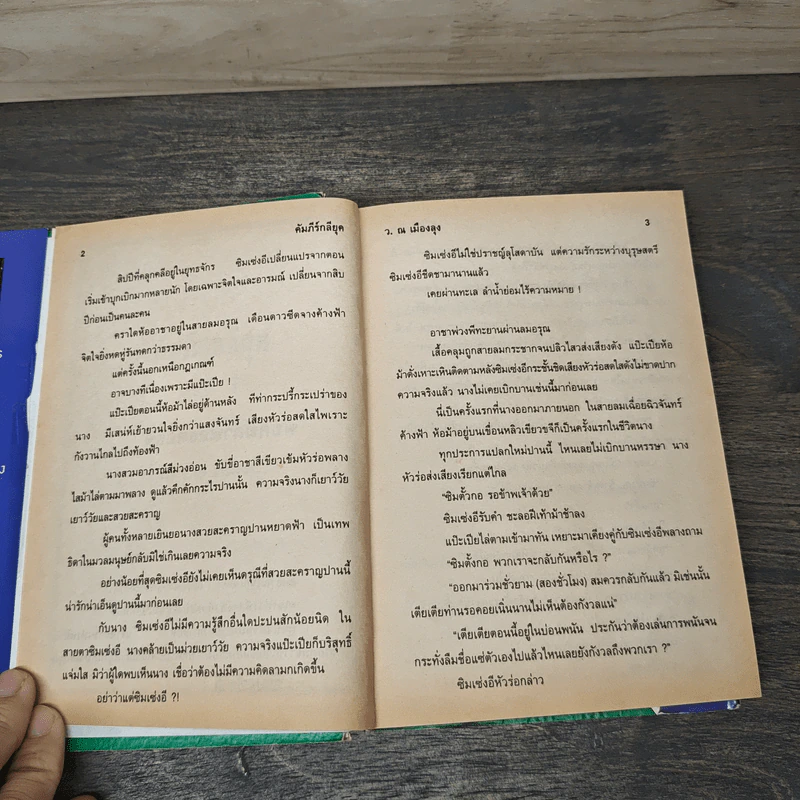 2
คัมภีร์กลียุค
สิบปีที่คลุกคลีอยู่ในยุทธจักร ซิมเซ่งอีเปลี่ยนแปรจากตอน
เริ่มเข้าบุกเบิกมากหลายนัก โดยเฉพาะจิตใจและอารมณ์ เปลี่ยนจากสิบ
ปีก่อนเป็นคนละคน
คราใดห้ออาชาอยู่ในสายลมอรุณ เดือนดาวซีดจางค้างฟ้า
จิตใจยิ่งหดหู่รันทดกว่าธรรมดา
แต่ครั้งนี้นอกเหนือกฎเกณฑ์
อาจบางทีเนื่องเพราะมีแป๊ะเปีย !
แป๊ะเปียตอนนี้ห้อม้าไล่อยู่ด้านหลัง ทีท่ากระปรี้กระเปร่าของ
นาง มีเสน่ห์เย้ายวนใจยิ่งกว่าแสงจันทร์ เสียงหัวร่อสดใสไพเราะ
กังวานไกลไปถึงท้องฟ้า
นางสวมอาภรณ์สีม่วงอ่อน ขับขี่อาชาสีเขียวเข้มหัวร่อพลาง
ไสม้าไล่ตามมาพลาง ดูแล้วคึกคักกระไรปานนั้น ความจริงนางก็เยาว์วัย
เยาว์วัยและสวยสะคราญ
ผู้คนทั้งหลายเยินยอนางสวยสะคราญปานหยาดฟ้า เป็นเทพ
ธิดาในมวลมนุษย์กลับมิใช่เกินเลยความจริง
อย่างน้อยที่สุดซิมเซ่งอียังไม่เคยเห็นดรุณีที่สวยสะคราญปานนี้
น่ารักน่าเอ็นดูปานนี้มาก่อนเลย
กับนาง ซิมเซ่งอีไม่มีความรู้สึกอื่นใดปะปนสักน้อยนิด ใน
สายตาซิมเซ่งอี นางคล้ายเป็นม่วยเยาว์วัย ความจริงแป๊ะเปียก็บริสุทธิ์
แจ่มใส มิว่าผู้ใดพบเห็นนาง เชื่อว่าต้องไม่มีความคิดลามกเกิดขึ้น
อย่าว่าแต่ซิมเซ่งอี ?!
ว. ณ เมืองลุง
3
ซิมเซ่งอีไม่ใช่ปราชญ์ลุโสดาบัน แต่ความรักระหว่างบุรุษสตรี
ซิมเซ่งอีชืดชามานานแล้ว
เคยผ่านทะเล ลำน้ำย่อมไร้ความหมาย !
อาชาพ่วงพีทะยานผ่านลมอรุณ
เสื้อคลุมถูกสายลมกระชากจนปลิวไสวส่งเสียงดัง แป๊ะเปียห้อ
ม้าดั่งเหาะเหินติดตามหลังซิมเซ่งอีกระชั้นชิดเสียงหัวร่อสดใสดังไม่ขาดปาก
ความจริงแล้ว นางไม่เคยเบิกบานเช่นนี้มาก่อนเลย
นี่เป็นครั้งแรกที่นางออกมาภายนอก ในสายลมเฉื่อยฉิวจันทร์
ค้างฟ้า ห้อม้าอยู่บนเขื่อนหลิวเขียวขจีก็เป็นครั้งแรกในชีวิตนาง
ทุกประการแปลกใหม่ปานนี้ ไหนเลยไม่เบิกบานหรรษา นาง
หัวร่อส่งเสียงเรียกแต่ไกล
“ซิมตั้วกอ รอข้าพเจ้าด้วย”
ซิมเซ่งอีรับคำ ชะลอฝีเท้าม้าช้าลง
แป๊ะเปียไล่ตามเข้ามาทัน เหยาะมาเคียงคู่กับซิมเซ่งอีพลางถาม
“ซิมตั้งกอ พวกเราจะกลับกันหรือไร ?”
“ออกมาร่วมชั่วยาม (สองชั่วโมง) สมควรกลับกันแล้ว มิเช่นนั้น
เตียเตียท่านรอคอยเนิ่นนานไม่เห็นต้องกังวลแน่”
“เตียเตียตอนนี้อยู่ในบ่อนพนัน ประกันว่าต้องเล่นการพนันจน
กระทั่งลืมชื่อแซ่ตัวเองไปแล้วไหนเลยยังกังวลถึงพวกเรา ?”
ซิมเซ่งอีหัวร่อกล่าว